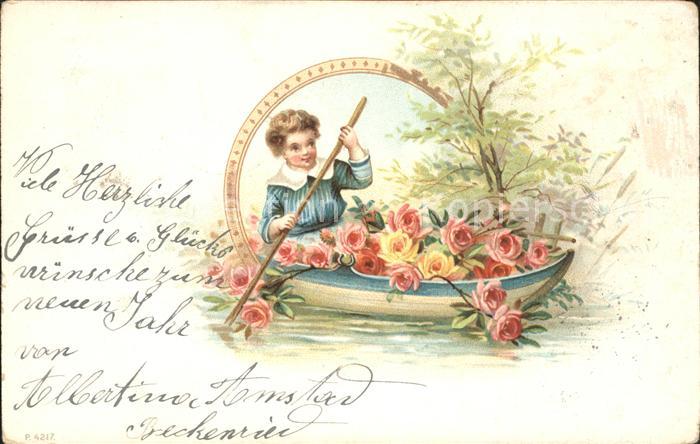 Viele Herzliche
Grüsse u. Glücks
wünsche zum
neuen Jahr
von
Albertina Amstad
Beckenried
P. 4217.